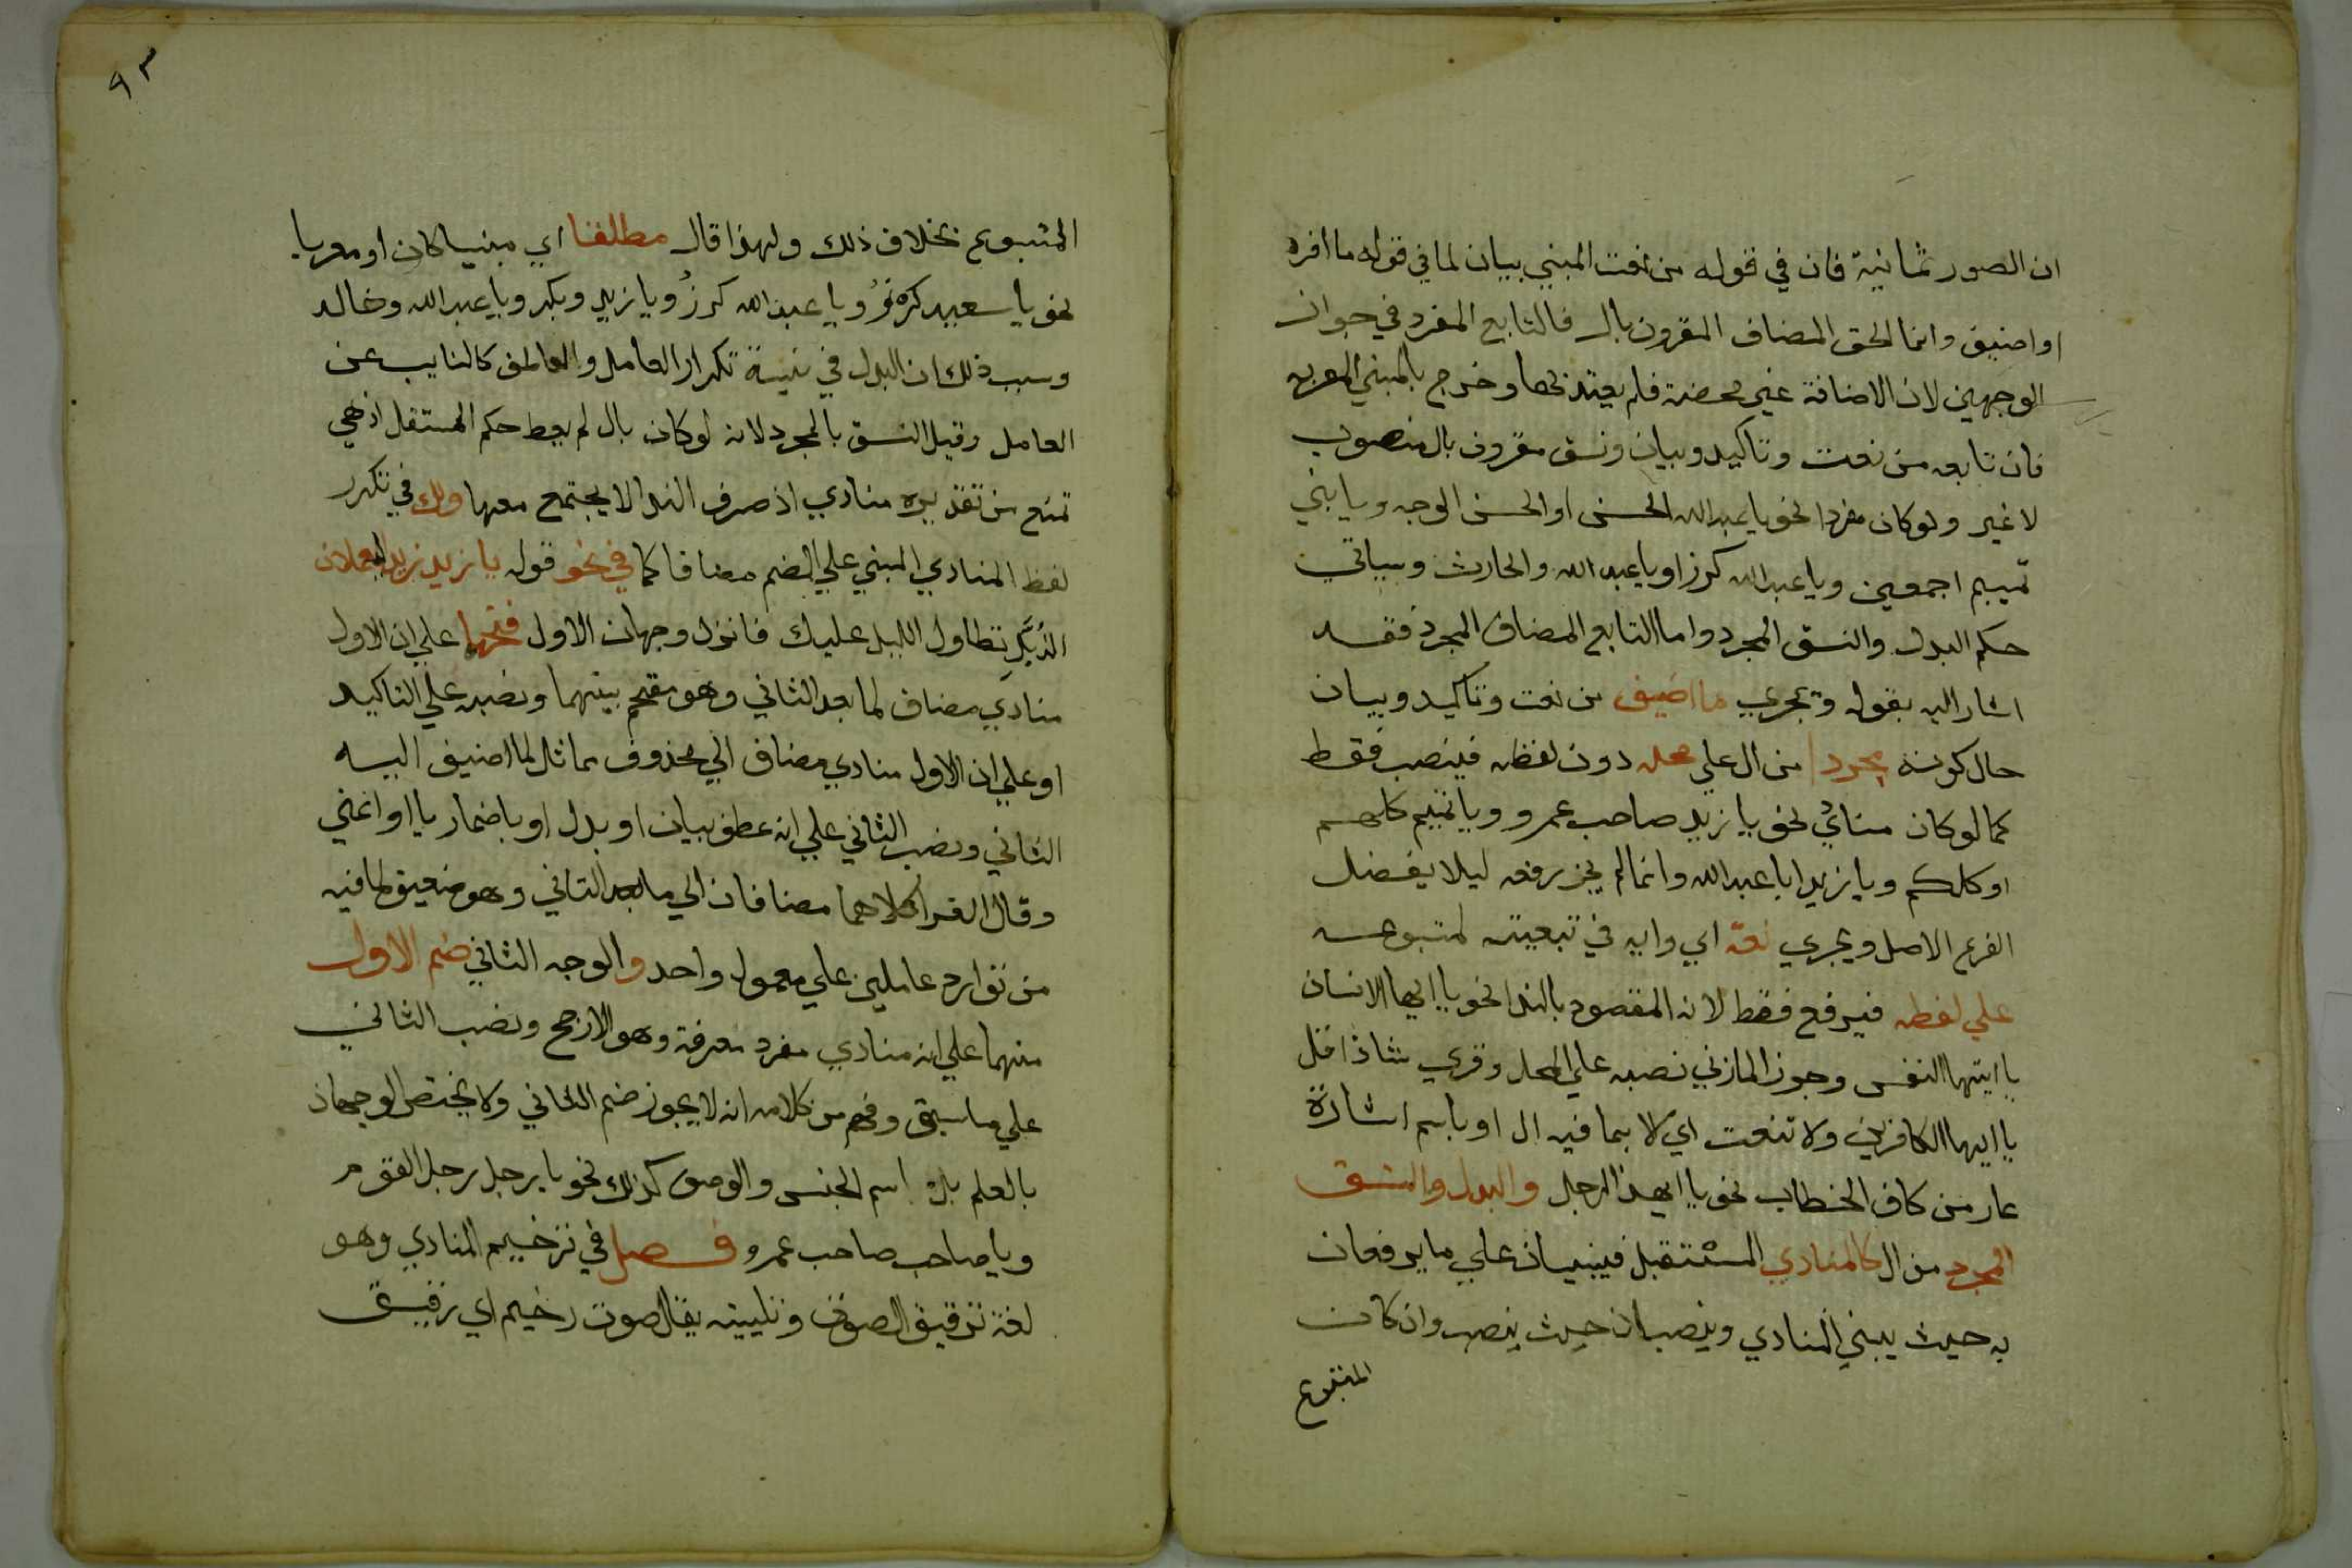 ان الصور ثمانية فان في قوله من نعت المبني بيان لما في قوله ما افرد
او اضيف وانما الحق المضاف المقرون بال فالتابع المفرد في جواز
الوجهين لان الاضافة غير محضة فلم يعتد بها وخرج بالمبني المعرب
فان تابعه من نعت وتاكيد وبيان ونسق مقرون بال منصوب
لا غير ولو كان مفردا نحو يا عبد الله الحسن او الحسن الوجه ويا بني
تميم اجمعين ويا عبد الله كرز او يا عبد الله والحارث وسياتي
حكم البدل والنسق المجرد واما التابع المضاف المجرد فقد
اشار اليه بقوله ويجري ما اضيف من نعت وتاكيد وبيان
حال كونه مجردا من ال علي محله دون لفظه فينصب فقط
كما لو كان منادي نحو يا زيد صاحب عمرو ويا تميم كلهم
او كلكم ويا زيد ابا عبد الله وانما لم يجز رفعه ليلا يفضل
الفرع الاصل ويجري نعت اي واية في تبعيته لمتبوعه
علي لفظه فيرفع فقط لانه المقصود بالندا نحو يا ايها الانسان
يا ايتها النفس وجوز المازني نصبه علي المحل وقري شاذا قل
يا ايها الكافرين ولا تنعت اي الا بما فيه ال او باسم اشارة
عار من كاف الخطاب نحو يا ايهذا الرجل والبدل والنسق
المجرد من ال كالمنادي المستقبل فيبنيان علي ما يرفعان
به حيث يبني المنادي وينصبان حيث ينصب وان كان
المتبوع
٩٣
المتبوع بخلاف ذلك ولهذا قال مطلقا اي مبنيا كان او معربا
نحو يا سعيد كرز ويا عبد الله كرزُ ويا زيد وبكر ويا عبد الله وخالد
وسبب ذلك ان البدل في نية تكرار العامل والعاطف كالنايب عن
العامل وقيل النسق بالمجرد لانه لو كان بال لم يعط حكم المستقل اذ هي
تمنع من تقديره منادي اذ حرف الندا لا يجتمع معها ولك في تكرر
لفظ المنادي المبني علي الضم مضافا كما في نحو قوله يا زيد زيد اليعملات
الذُبَّلِ تطاول الليل عليك فانزل وجهان الاول فتحهما علي ان الاول
منادي مضاف لما بعد الثاني وهو مقحم بينهما ونصبه علي التاكيد
او علي ان الاول منادي مضاف الي محذوف مماثل لما اضيف اليه
الثاني ونصب الثاني علي انه عطف بيان او بدل او باضمار يا او اعني
وقال الفرا كلاهما مضافان الي ما بعد الثاني وهو ضعيف لما فيه
من توارد عاملين علي معمول واحد والوجه الثاني ضم الاول
منهما علي انه منادي مفرد معرفة وهو الارجح ونصب الثاني
علي ما سبق وفهم من كلامه انه لا يجوز ضم الثاني ولا يختص الوجهان
بالعلم بل اسم الجنس والوصف كذلك نحو يا رجل رجل القوم
ويا صاحب صاحب عمرو فصل في ترخيم المنادي وهو
لغة ترقيق الصوت وتليينه يقال صوت رخيم اي رقيق